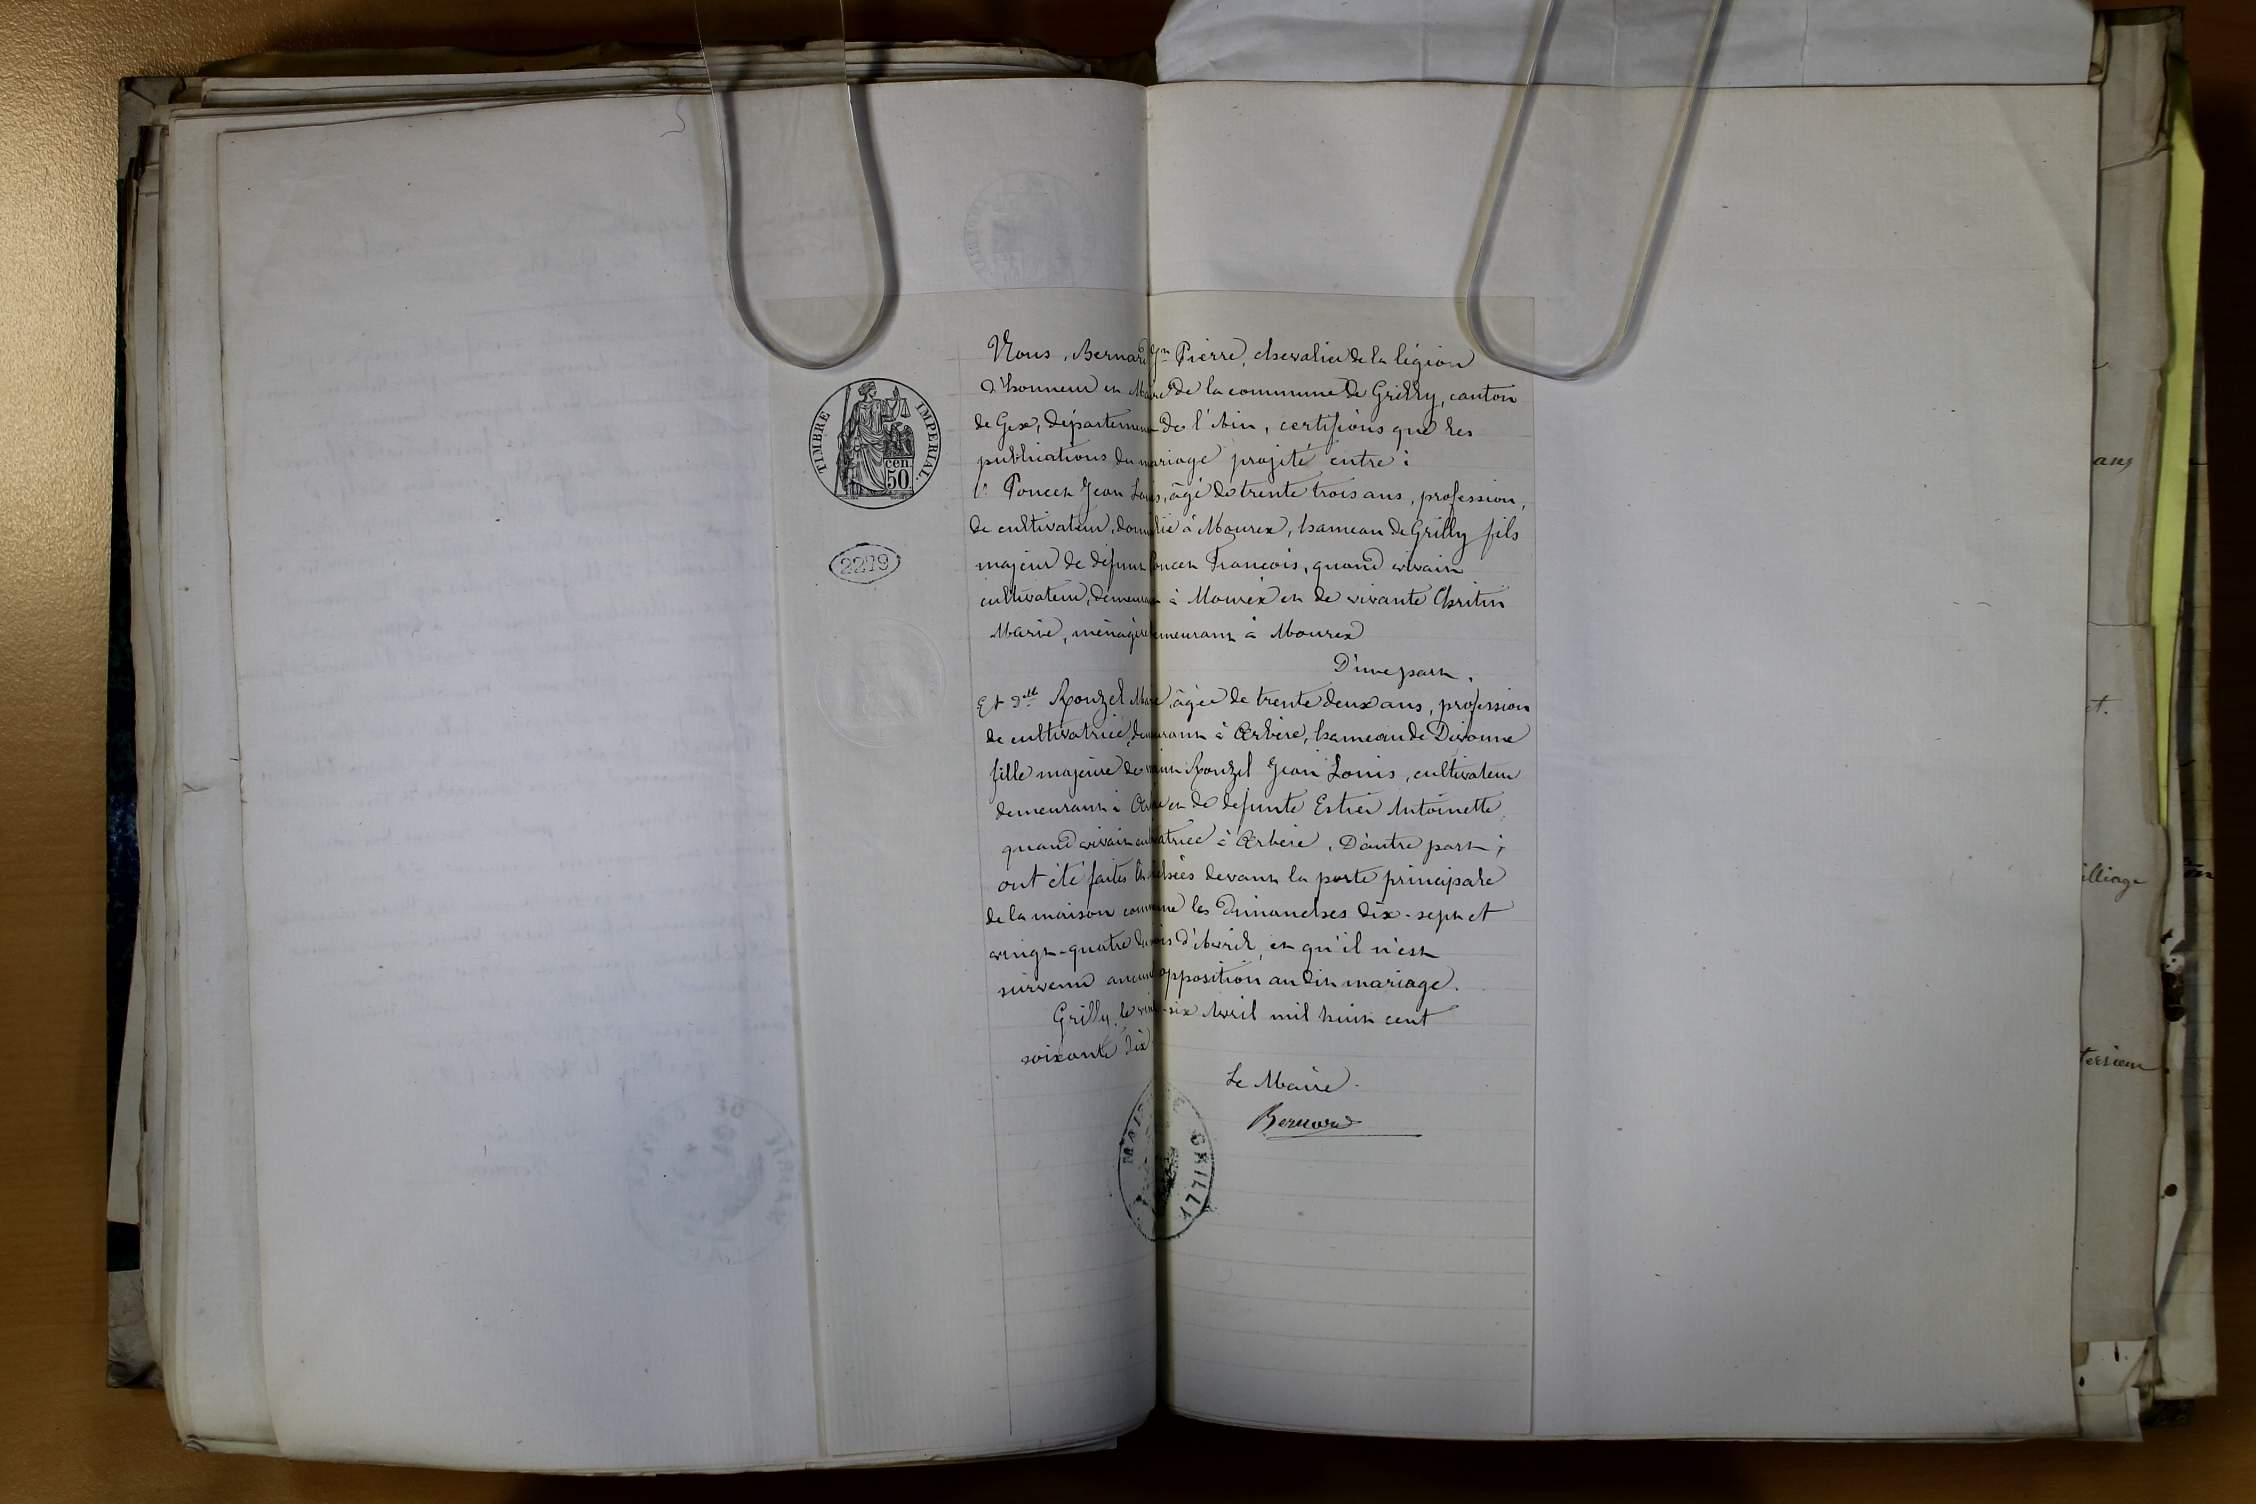 Nous, Bernard Jn Pierre, chevalier de la légion
d'honneur et Maire de la commune de Grilly, canton
de Gex, département de l'Ain, certifions que les
publications du mariage projeté entre :
1° Poncet Jean Louis, âgé de trente trois ans, profession,
de cultivateur, domicilié à Mourex, hameau de Grilly fils
majeur de défunt Poncet François, quand vivait
cultivateur, demeurant à Mourex et de vivante Christin
Marie, ménagère demeurant à Mourex
D'une part.
Et Dlle Rouzel Marie, âgée de trente deux ans, profession
de cultivatrice, demeurant à Arbère, hameau de Divonne
fille majeure de vivant Rouzel Jean Louis, cultivateur
demeurant à Arbère et de défunte Estier Antoinette,
quand vivait cultivatrice à Arbère, D'autre part ;
ont été faites et affichées devant la porte principale
de la maison commune les Dimanches dix-sept et
vingt-quatre du mois d'Avril, et qu'il n'est
survenu aucune opposition au dit mariage.
Grilly, le vingt-six Avril mil huit cent
soixante dix
Le Maire.
Bernard
TIMBRE IMPERIAL.
50 cen.
2279
MAIRIE DE GRILLY
ans
et.
illiage
tersieux